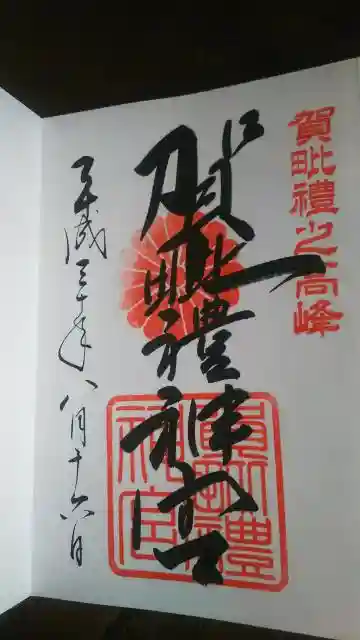 賀毗禮之高峰
賀毗禮神宮
平成三十年八月十六日